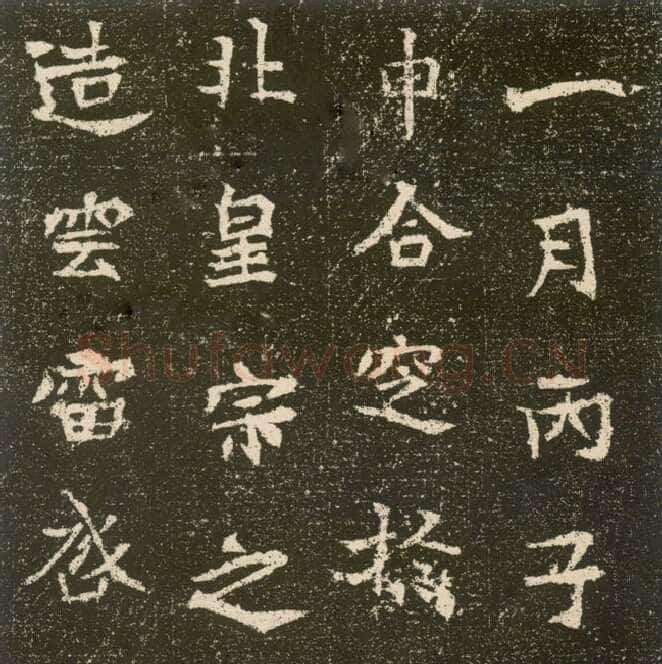 一月丙子
申合窆扵
北皇宗之
造雲雷
Shufawang.CN